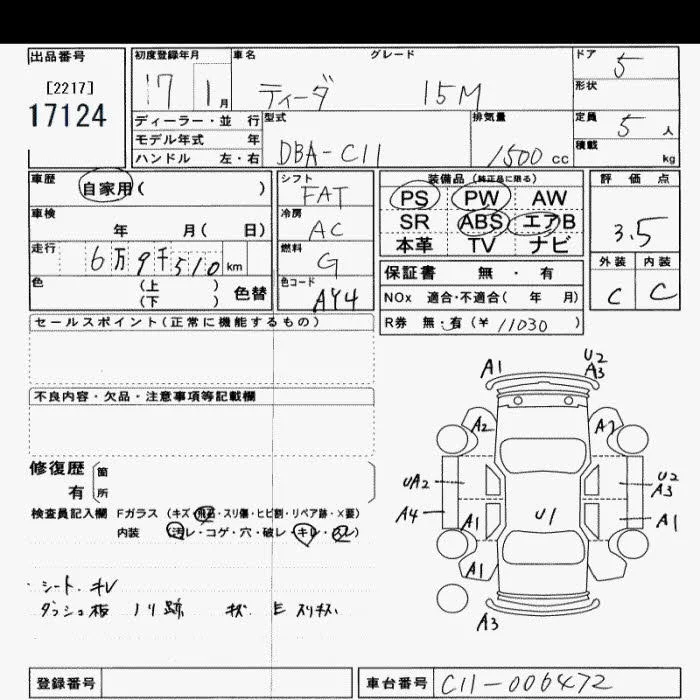 出品番号
[2217]
17124
初度登録年月 車名 グレード ドア
17 1月 ティーダ 15M 5
形状
ディーラー・並行 型式 排気量 定員
モデル年式 年 5人
ハンドル 左・右 DBA-C11 1500cc 積載 kg
車歴 シフト 装備品(純正品に限る) 評価点
自家用( ) FAT PS PW AW
車検 冷房 SR ABS エアB 3.5
年 月( 日) AC 本革 TV ナビ
走行 燃料 外装 内装
6万9千510km G 保証書 無・有 C C
色 (上 ) 色替 色コード NOx 適合・不適合( 年 月)
(下 ) AY4 R券 無・有(¥11030)
セールスポイント(正常に機能するもの)
A1 U2
A3
不良内容・欠品・注意事項等記載欄
A2
修復歴 箇
有 所
UA2 U2
A3
検査員記入欄 Fガラス (キズ・飛石・スリ傷・ヒビ割・リペア跡・X要)
A4 A1 U1 A1
内装 (汚レ・コゲ・穴・破レ・キレ・スレ)
A1
シート キレ
ダッシュ板 ノリ跡 キズ
A3
登録番号 車台番号 C11-006472